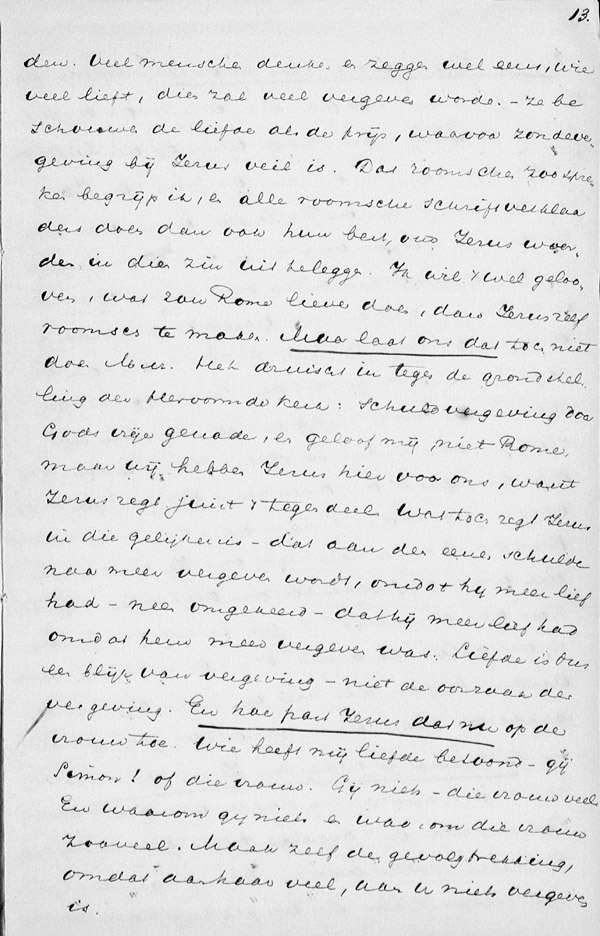 13.
den. Veel menschen denken en zeggen wel eens, wie
veel lieft, dien zal veel vergeven worden. – Ze be
schouwen de liefde als de prijs, waarvoor zondever-
geving bij Jezus veil is. Dat roomschen zoo spre-
ken begrijp ik, en alle roomsche schriftverklaa
ders doen dan ook hun best, om Jezus woor-
den in dien zin uit te leggen. Ik wil 't wel geloo-
ven, wat zou Rome liever doen, dan Jezus zelf
roomsch te maken. Maar laat ons dat toch niet
doen M.H. Het druischt in tegen de grondstel-
ling der Hervormde kerk: Schuldvergeving door
Gods vrije genade, en geloof mij, niet Rome,
maar wij hebben Jezus hier voor ons, want
Jezus zegt juist 't tegendeel. Wat toch zegt Jezus
in die gelijkenis – dat aan den eenen schulde
naar meer vergeven wordt, omdat hij meer lief
had – neen omgekeerd – dat hij meer lief had
omdat hem meer vergeven was. Liefde is dus
een blijk van vergeving – niet de oorzaak der
vergeving. En hoe past Jezus dat nu op de
vrouw toe. Wie heeft mij liefde betoond – gij
Simon! of die vrouw. Gij niets – die vrouw veel.
En waarom gij niets en waarom die vrouw
zooveel. Maak zelf de gevolgtrekking,
omdat aan haar veel, aan u niets vergeven
is.